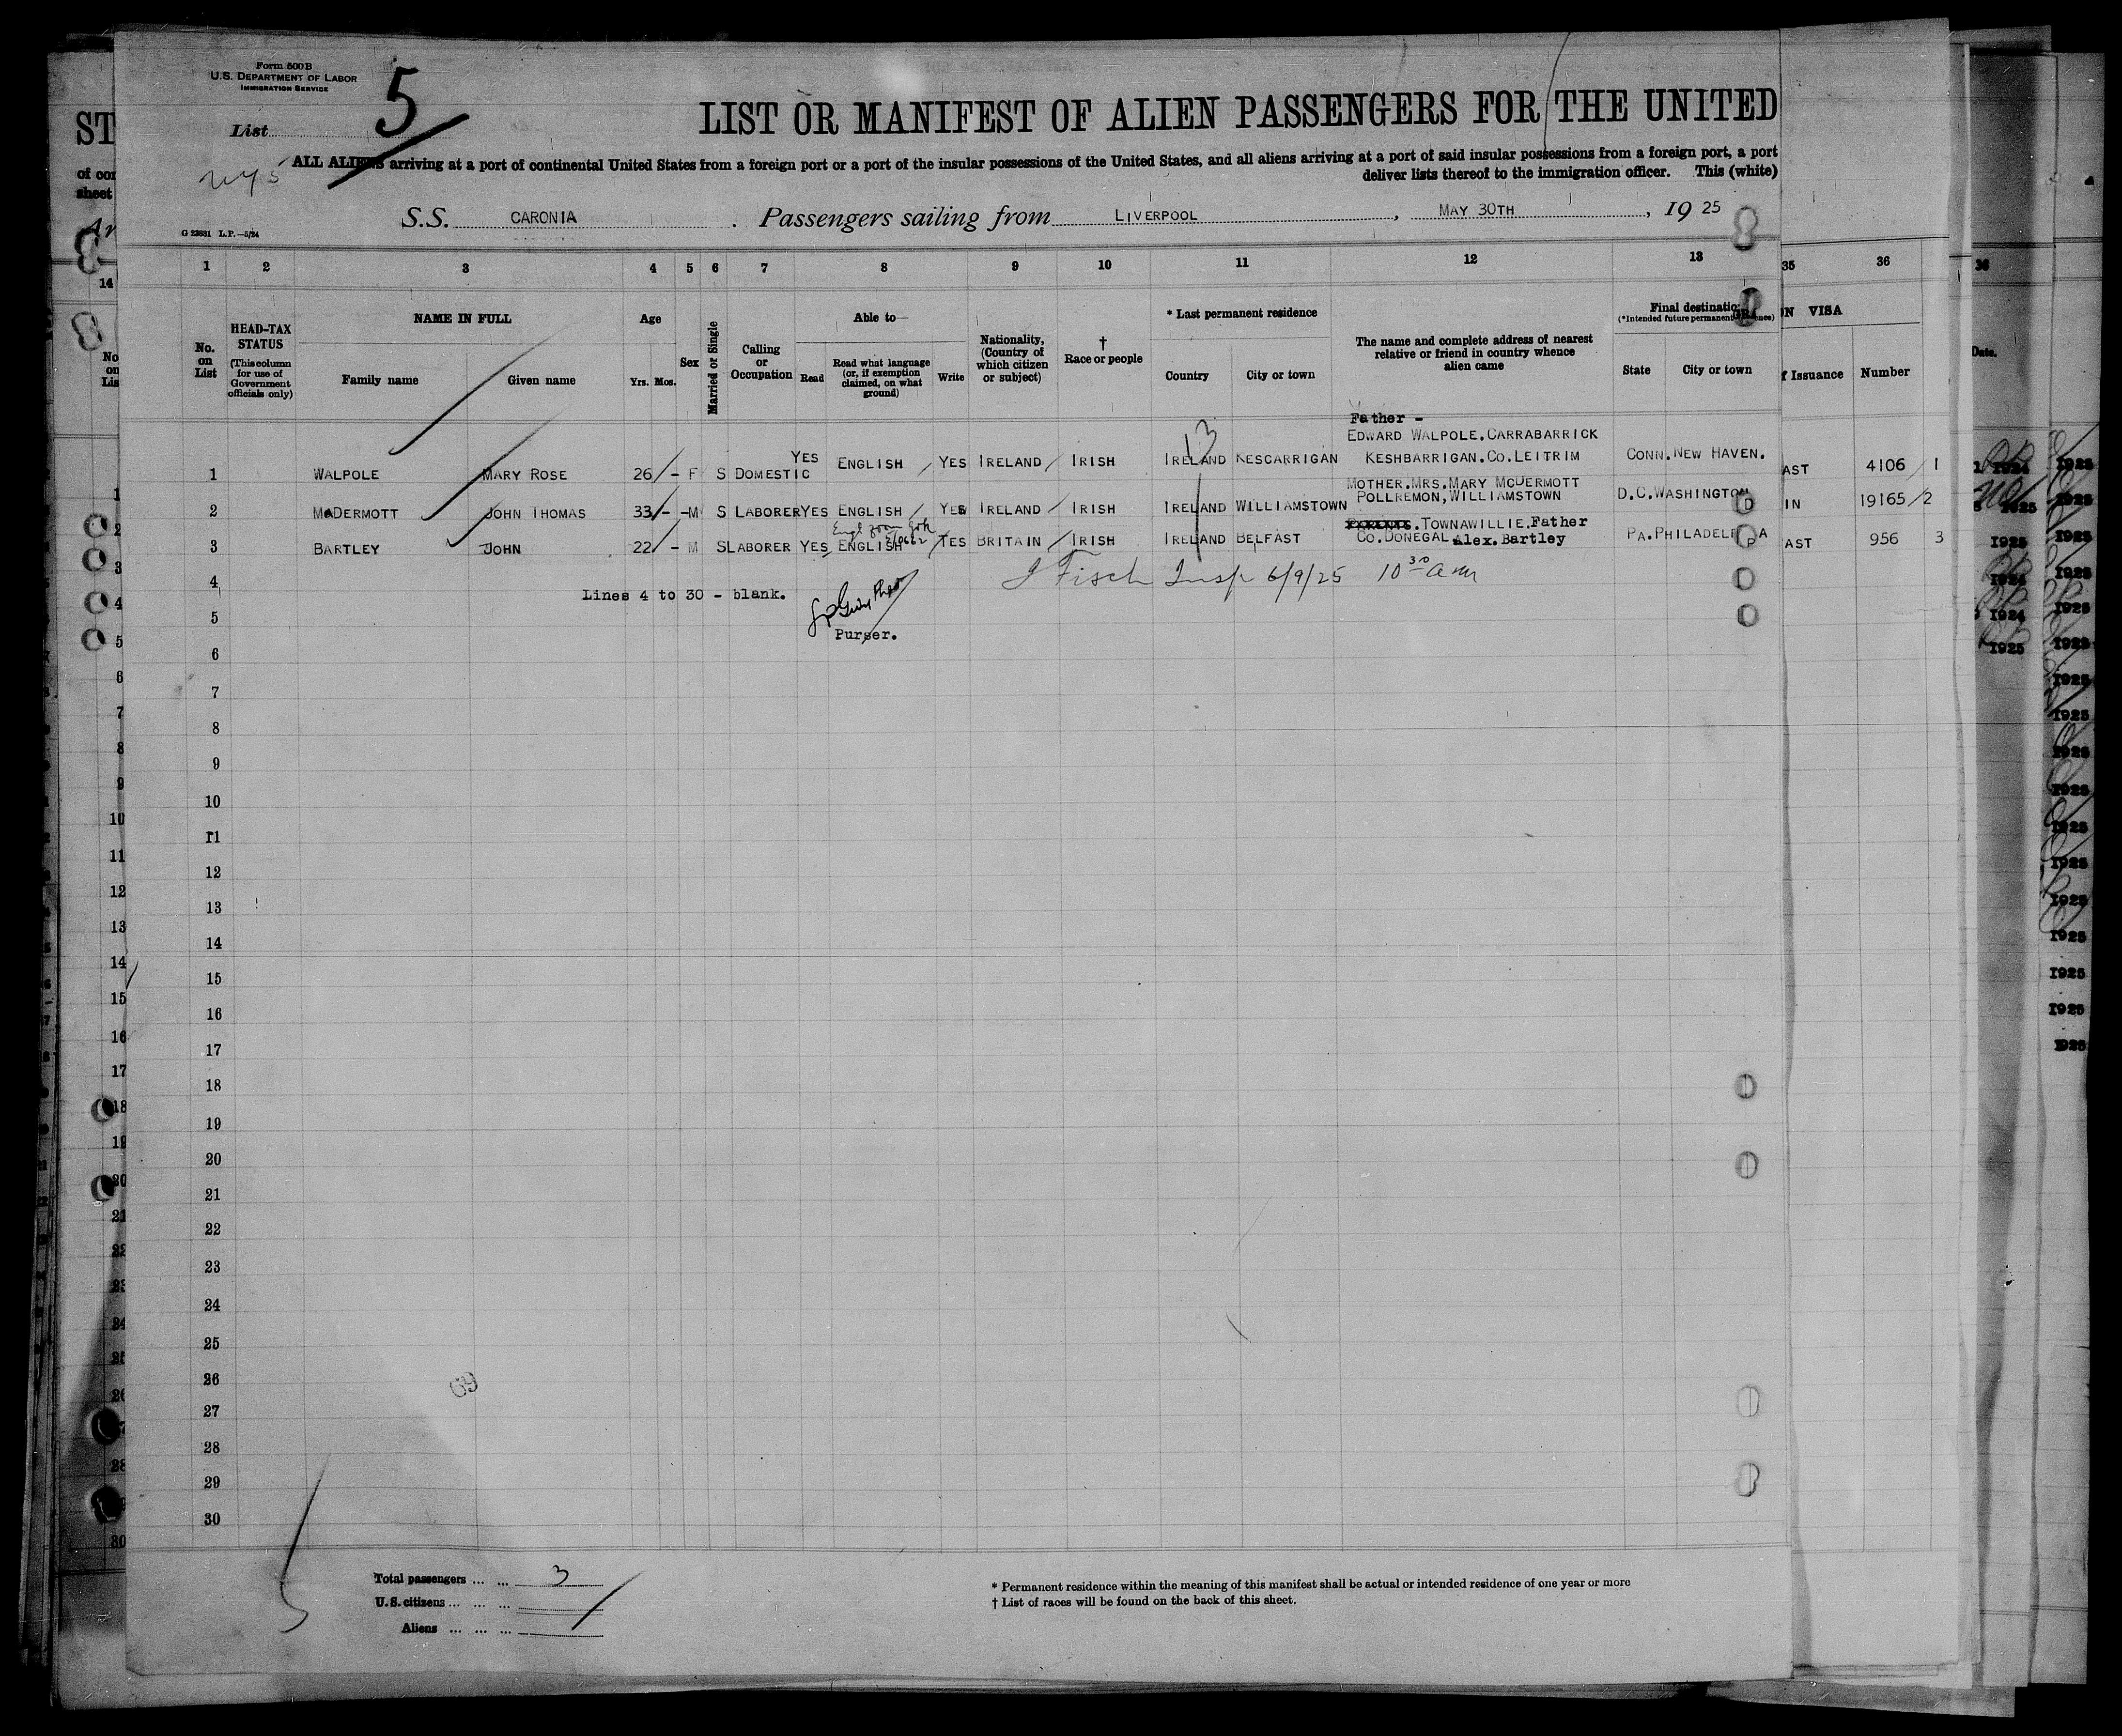 Form 500B
U.S. DEPARTMENT OF LABOR
IMMIGRATION SERVICE
List 5
LIST OR MANIFEST OF ALIEN PASSENGERS FOR THE UNITED
ALL ALIENS arriving at a port of continental United States from a foreign port or a port of the insular possessions of the United States, and all aliens arriving at a port of said insular possessions from a foreign port, a port
deliver lists thereof to the immigration officer. This (white)
S.S. CARONIA. Passengers sailing from LIVERPOOL, MAY 30TH, 19 25
G 23881 L.P.—5/24
1 2 3 4 5 6 7 8 9 10 11 12 13 35 36
No. on List
HEAD-TAX STATUS
(This column for use of Government officials only)
NAME IN FULL
Family name Given name
Age
Yrs. Mos.
Sex
Married or Single
Calling or Occupation
Able to—
Read
Read what language (or, if exemption claimed, on what ground)
Write
Nationality, (Country of which citizen or subject)
† Race or people
* Last permanent residence
Country City or town
The name and complete address of nearest relative or friend in country whence alien came
Final destination
(*Intended future permanent
State City or town
VISA
Issuance Number
Date.
Father -
EDWARD WALPOLE. CARRABARRICK
1 WALPOLE MARY ROSE 26 - F S DOMESTIC YES ENGLISH YES IRELAND IRISH IRELAND KESCARRIGAN KESHBARRIGAN. CO. LEITRIM CONN. NEW HAVEN. AST 4106 1
MOTHER. MRS. MARY MCDERMOTT
2 MCDERMOTT JOHN THOMAS 33 - M S LABORER YES ENGLISH YES IRELAND IRISH IRELAND WILLIAMSTOWN POLLREMON, WILLIAMSTOWN D.C. WASHINGTON IN 19165 2
PARENTS. TOWNAWILLIE. Father
3 BARTLEY JOHN 22 - M S LABORER YES ENGLISH YES BRITAIN IRISH IRELAND BELFAST CO. DONEGAL Alex. Bartley PA. PHILADELP A AST 956 3
J Fisch Insp 6/9/25 10 30 am
4
Lines 4 to 30 - blank.
5
Purser.
6
7
8
9
10
11
12
13
14
15
16
17
18
19
20
21
22
23
24
25
26
27
28
29
30
Total passengers ... ... 3
U.S. citizens ... ... ...
Aliens ... ... ...
* Permanent residence within the meaning of this manifest shall be actual or intended residence of one year or more
† List of races will be found on the back of this sheet.